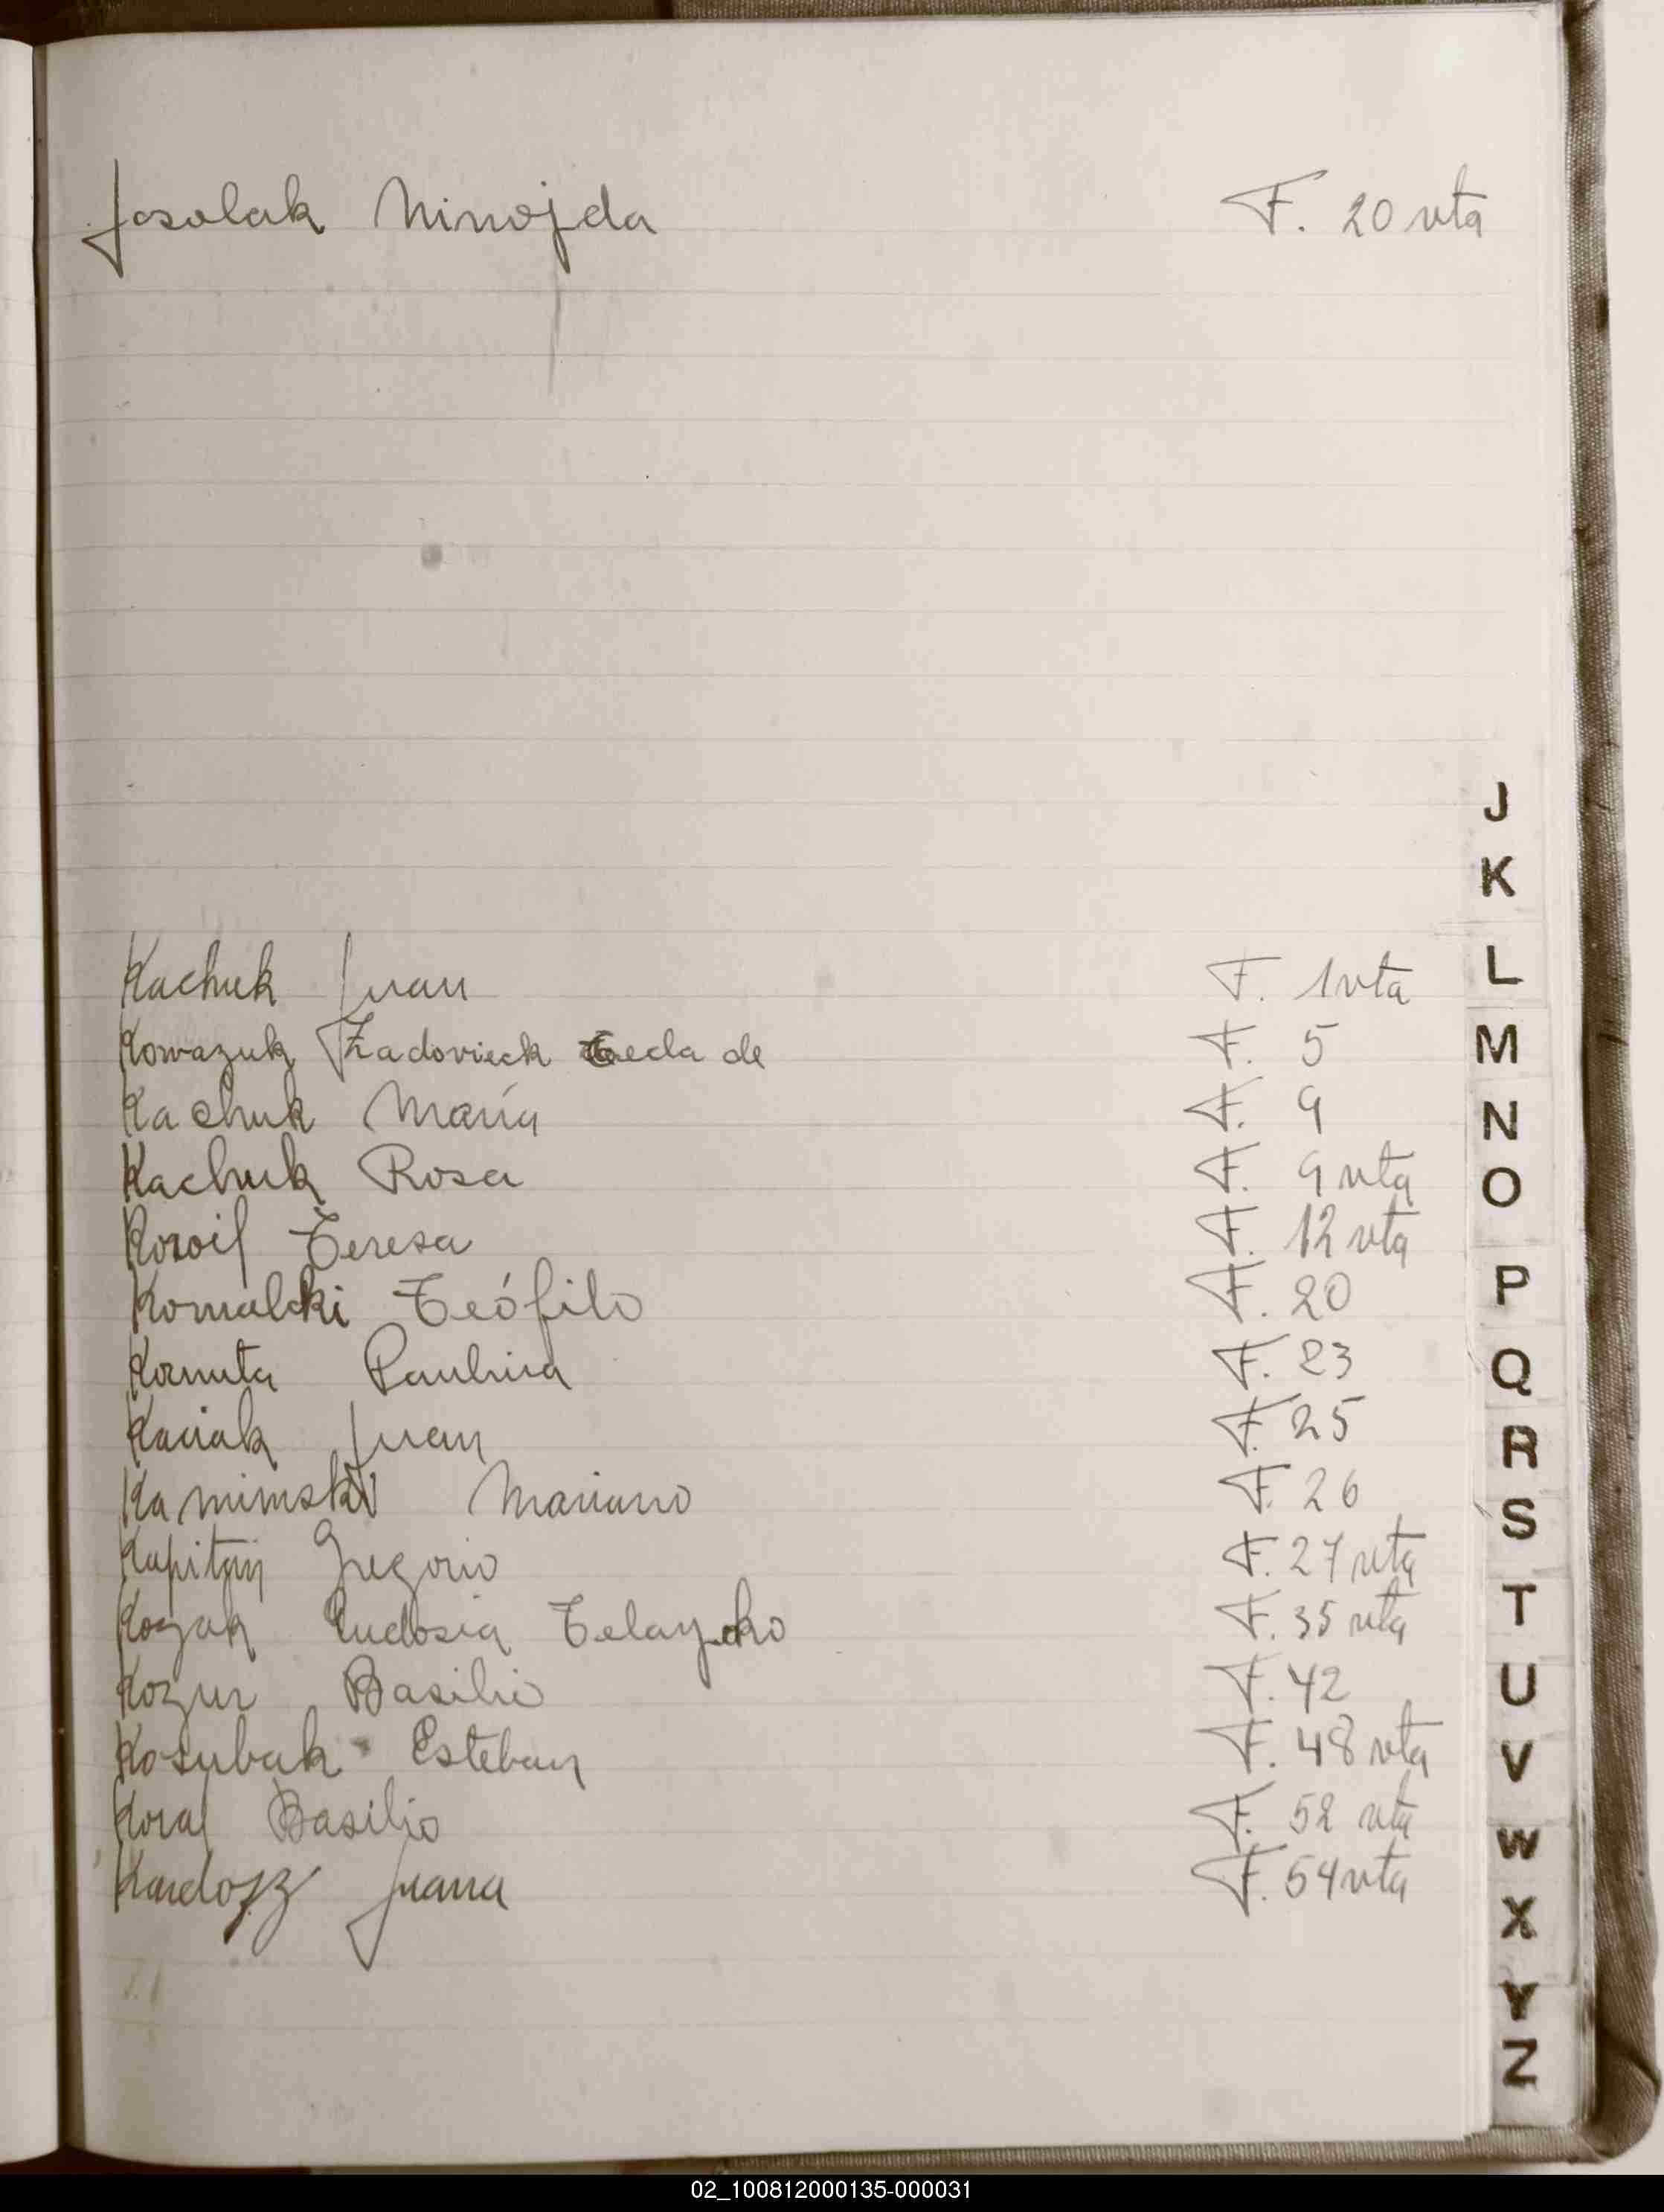 Josolak Ninojda F. 20 vta
J
K
Kachuk Juan F. 1 vta
L
Kowazuk Zadovieck Tecla de F. 5
M
Kachuk María F. 9
N
Kachuk Rosa F. 9 vta
O
Teresa F. 12 vta
Komalcki Teófilo F. 20
P
Kornuta Paulina F. 23
Q
Kaciak Juan F. 25
R
Kamimski Mariano F. 26
S
Kapitan Gregorio F. 27 vta
T
Kozak Eudosia F. 35 vta
U
Kozur Basilio F. 42
V
Kosubak Esteban F. 48 vta
W
Koral Basilio F. 52 vta
X
Kardosz Juana F. 54 vta
Y
Z
02_100812000135-000031